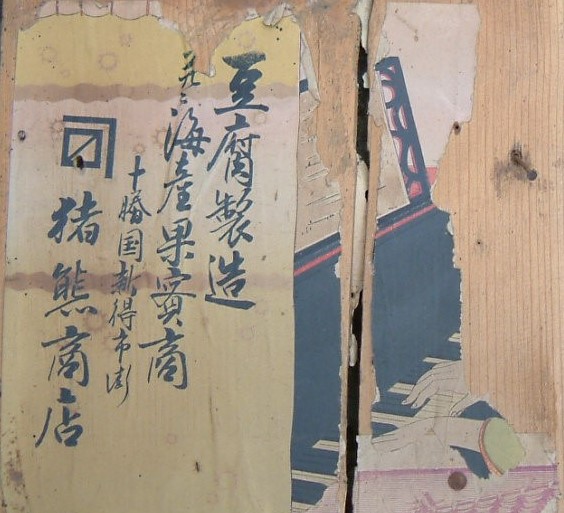 豆腐製造
并ニ海産果實商
十勝国新得市街
猪熊商店